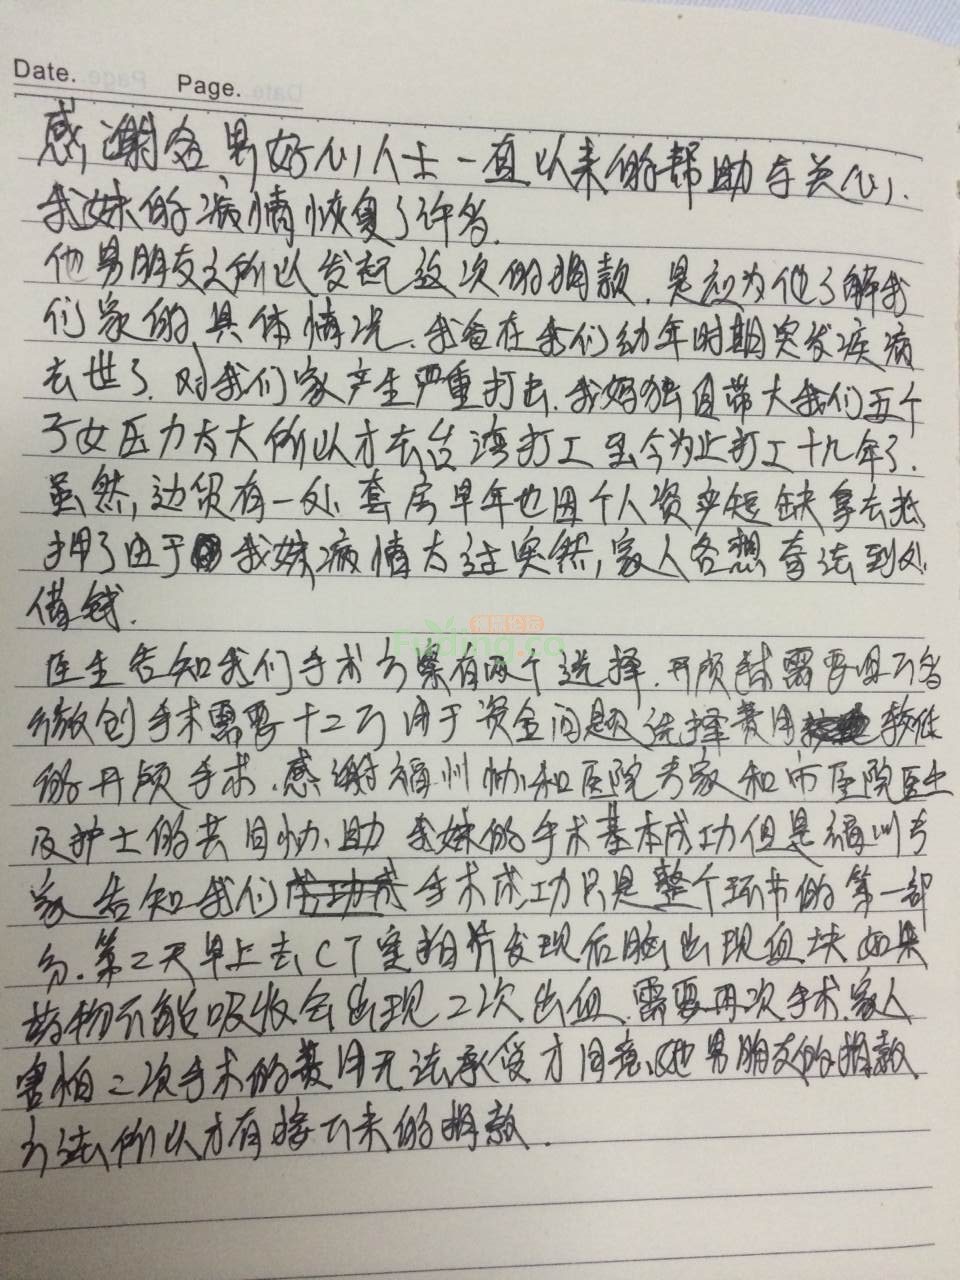 Date. Page.
感谢各界好心人士一直以来的帮助与关心.
我妹的病情恢复了许多.
他男朋友之所以发起这次的捐款.是应为他了解我
们家的具体情况.我爸在我们幼年时期突发疾病
去世了.对我们家产生严重打击.我妈独自带大我们五个
子女压力太大所以才去台湾打工至今为止打工十九年了.
虽然,边贸有一处套房早年也因个人资产短缺拿去抵
押了由于我妹病情太过突然,家人各想奇法到处
借钱.
Fuding.co
医生告知我们手术方案有两个选择.开颅需要四万多
微创手术需要十二万用于资金问题选择费用较低
的开颅手术.感谢福州协和医院专家和市医院医生
及护士的共同协助我妹的手术基本成功但是福州专
家告知我们手术成功只是整个环节的第一部
分.第二天早上去CT室拍片发现后脑出现血块如果
药物不能吸收会出现二次出血.需要再次手术.家人
害怕二次手术的费用无法承受才同意她男朋友的捐款
方法所以才有接下来的捐款.